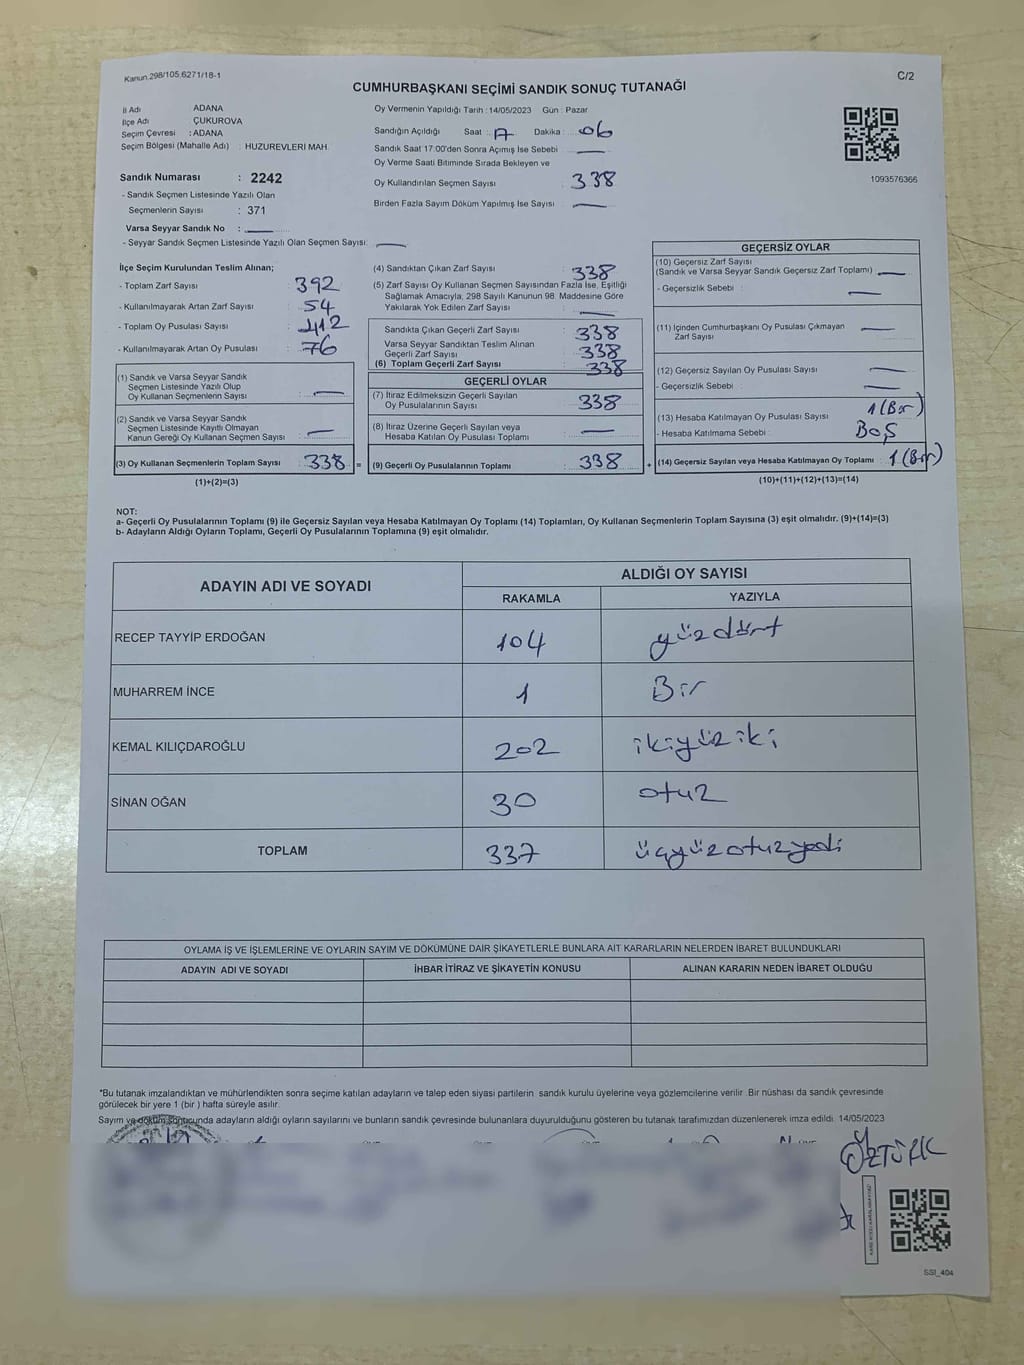 Kanun.298/105,6271/18-1
C/2
CUMHURBAŞKANI SEÇİMİ SANDIK SONUÇ TUTANAĞI
İl Adı ADANA
İlçe Adı ÇUKUROVA
Seçim Çevresi : ADANA
Seçim Bölgesi (Mahalle Adı) : HUZUREVLERİ MAH.
Sandık Numarası : 2242
- Sandık Seçmen Listesinde Yazılı Olan
Seçmenlerin Sayısı : 371
Varsa Seyyar Sandık No :
- Seyyar Sandık Seçmen Listesinde Yazılı Olan Seçmen Sayısı:
Oy Vermenin Yapıldığı Tarih : 14/05/2023 Gün : Pazar
Sandığın Açıldığı Saat : 17 Dakika : 06
Sandık Saat 17:00'den Sonra Açımış İse Sebebi
Oy Verme Saati Bitiminde Sırada Bekleyen ve
Oy Kullandırılan Seçmen Sayısı : 338
Birden Fazla Sayım Döküm Yapılmış İse Sayısı
1093576366
İlçe Seçim Kurulundan Teslim Alınan;
- Toplam Zarf Sayısı : 392
- Kullanılmayarak Artan Zarf Sayısı : 54
- Toplam Oy Pusulası Sayısı : 412
- Kullanılmayarak Artan Oy Pusulası : 76
(1) Sandık ve Varsa Seyyar Sandık
Seçmen Listesinde Yazılı Olup
Oy Kullanan Seçmenlerin Sayısı :
(2) Sandık ve Varsa Seyyar Sandık
Seçmen Listesinde Kayıtlı Olmayan
Kanun Gereği Oy Kullanan Seçmen Sayısı :
(3) Oy Kullanan Seçmenlerin Toplam Sayısı : 338 =
(1)+(2)=(3)
(4) Sandıktan Çıkan Zarf Sayısı : 338
(5) Zarf Sayısı Oy Kullanan Seçmen Sayısından Fazla İse, Eşitliği
Sağlamak Amacıyla, 298 Sayılı Kanunun 98. Maddesine Göre
Yakılarak Yok Edilen Zarf Sayısı :
Sandıkta Çıkan Geçerli Zarf Sayısı : 338
Varsa Seyyar Sandıktan Teslim Alınan
Geçerli Zarf Sayısı : 338
(6) Toplam Geçerli Zarf Sayısı : 338
GEÇERLİ OYLAR
(7) İtiraz Edilmeksizin Geçerli Sayılan
Oy Pusulalarının Sayısı : 338
(8) İtiraz Üzerine Geçerli Sayılan veya
Hesaba Katılan Oy Pusulası Toplamı :
(9) Geçerli Oy Pusulalarının Toplamı : 338 +
GEÇERSİZ OYLAR
(10) Geçersiz Zarf Sayısı
(Sandık ve Varsa Seyyar Sandık Geçersiz Zarf Toplamı)
- Geçersizlik Sebebi :
(11) İçinden Cumhurbaşkanı Oy Pusulası Çıkmayan
Zarf Sayısı
(12) Geçersiz Sayılan Oy Pusulası Sayısı :
- Geçersizlik Sebebi :
(13) Hesaba Katılmayan Oy Pusulası Sayısı : 1 (Bir)
- Hesaba Katılmama Sebebi : Boş
(14) Geçersiz Sayılan veya Hesaba Katılmayan Oy Toplamı : 1 (Bir)
(10)+(11)+(12)+(13)=(14)
NOT:
a- Geçerli Oy Pusulalarının Toplamı (9) ile Geçersiz Sayılan veya Hesaba Katılmayan Oy Toplamı (14) Toplamları, Oy Kullanan Seçmenlerin Toplam Sayısına (3) eşit olmalıdır. (9)+(14)=(3)
b- Adayların Aldığı Oyların Toplamı, Geçerli Oy Pusulalarının Toplamına (9) eşit olmalıdır.
ADAYIN ADI VE SOYADI ALDIĞI OY SAYISI
RAKAMLA YAZIYLA
RECEP TAYYİP ERDOĞAN 104 yüzdört
MUHARREM İNCE 1 Bir
KEMAL KILIÇDAROĞLU 202 ikiyüz iki
SİNAN OĞAN 30 otuz
TOPLAM 337 üçyüzotuzyedi
OYLAMA İŞ VE İŞLEMLERİNE VE OYLARIN SAYIM VE DÖKÜMÜNE DAİR ŞİKAYETLERLE BUNLARA AİT KARARLARIN NELERDEN İBARET BULUNDUKLARI
ADAYIN ADI VE SOYADI İHBAR İTİRAZ VE ŞİKAYETİN KONUSU ALINAN KARARIN NEDEN İBARET OLDUĞU
*Bu tutanak imzalandıktan ve mühürlendikten sonra seçime katılan adayların ve talep eden siyasi partilerin sandık kurulu üyelerine veya gözlemcilerine verilir. Bir nüshası da sandık çevresinde
görülecek bir yere 1 (bir ) hafta süreyle asılır.
Sayım ve döküm sonucunda adayların aldığı oyların sayılarını ve bunların sandık çevresinde bulunanlara duyurulduğunu gösteren bu tutanak tarafımızdan düzenlenerek imza edildi. 14/05/2023
ÖZTÜRK
SSI_404